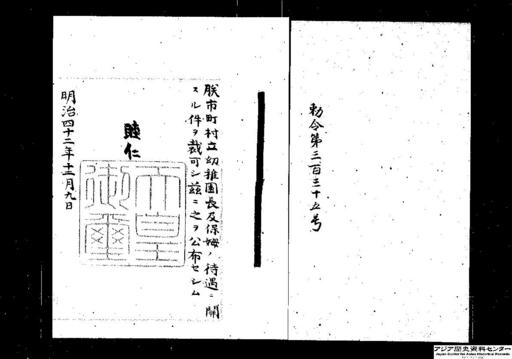 勅令第三百三十五号
朕市町村立幼稚園長及保姆ノ待遇ニ関
スル件ヲ裁可シ茲ニ之ヲ公布セシム
睦仁
天皇
御璽
明治四十二年十二月九日
アジア歴史資料センター
Japan Center for Asian Historical Records